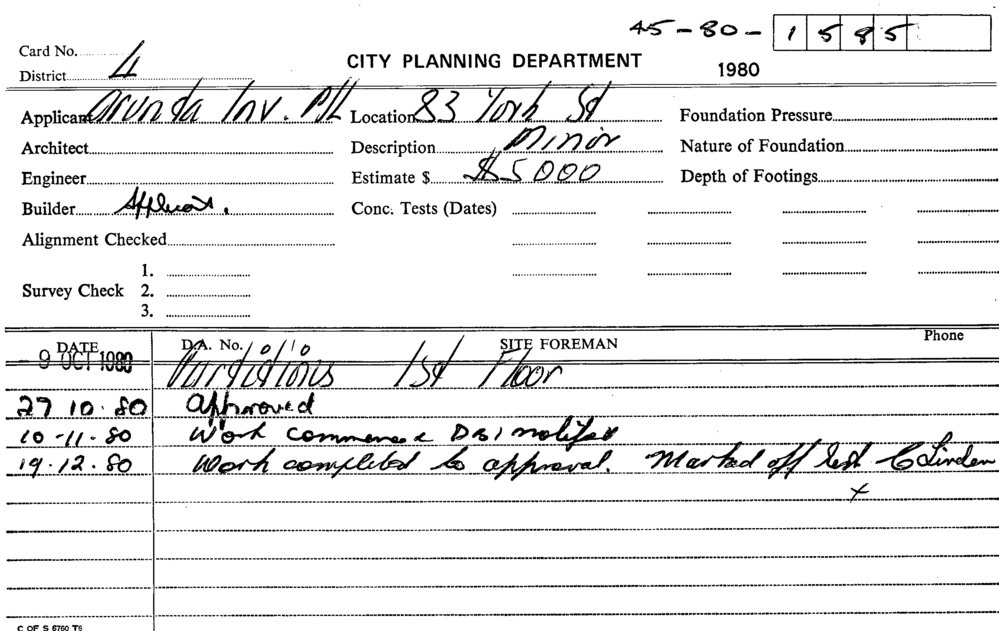 45-80- 1 5 8 5
Card No.
District 4
CITY PLANNING DEPARTMENT
1980
Applicant Arunda Inv. P/L Location 83 York St Foundation Pressure
Architect Description Minor Nature of Foundation
Engineer Estimate $ $5000 Depth of Footings
Builder Applicant. Conc. Tests (Dates)
Alignment Checked
1.
Survey Check 2.
3.
DATE D.A. No. SITE FOREMAN Phone
- 9 OCT 1980 Partitions 1st Floor
27 10. 80 Approved
10-11-80 Work commenced DBI notified
19.12.80 Work completed to approval. Marked off list C Linden
x
C OF S 6760 T6